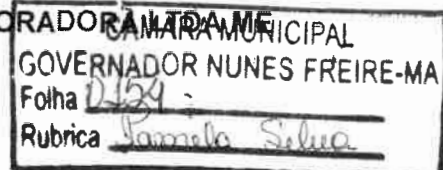 ORADORA LTDA ME
CAMARA MUNICIPAL
GOVERNADOR NUNES FREIRE-MA
Folha 0154
Rubrica Pamela Silva